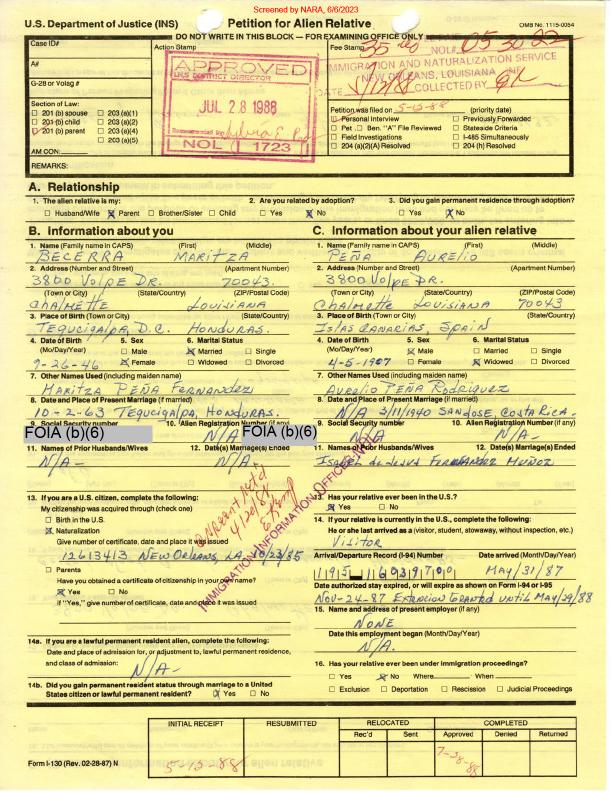 Screened by NARA, 6/6/2023
U.S. Department of Justice (INS) Petition for Alien Relative OMB No. 1115-0054
DO NOT WRITE IN THIS BLOCK — FOR EXAMINING OFFICE ONLY
Case ID#
Action Stamp
Fee Stamp
A#
G-28 or Volag #
APPROVED
INS DISTRICT DIRECTOR
JUL 28 1988
NOL 1723
35 00 NOL# 053022
IMMIGRATION AND NATURALIZATION SERVICE
NEW ORLEANS, LOUISIANA
DATE COLLECTED BY
Section of Law:
☐ 201 (b) spouse ☐ 203 (a)(1)
☐ 201 (b) child ☐ 203 (a)(2)
☑ 201 (b) parent ☐ 203 (a)(4)
☐ 203 (a)(5)
AM CON:
Petition was filed on 5-13-88 (priority date)
Personal Interview ☐ Previously Forwarded
☐ Pet. ☐ Ben. "A" File Reviewed ☐ Stateside Criteria
☐ Field Investigations ☐ I-485 Simultaneously
☐ 204 (a)(2)(A) Resolved ☐ 204 (h) Resolved
REMARKS:
A. Relationship
1. The alien relative is my:
☐ Husband/Wife ☒ Parent ☐ Brother/Sister ☐ Child
2. Are you related by adoption?
☐ Yes ☒ No
3. Did you gain permanent residence through adoption?
☐ Yes ☒ No
B. Information about you
1. Name (Family name in CAPS) (First) (Middle)
BECERRA MARITZA
2. Address (Number and Street) (Apartment Number)
3800 Volpe DR. 70043.
(Town or City) (State/Country) (ZIP/Postal Code)
Chalmette Louisiana
3. Place of Birth (Town or City) (State/Country)
Tegucigalpa, D.C. Honduras.
4. Date of Birth 5. Sex 6. Marital Status
(Mo/Day/Year) ☐ Male ☒ Married ☐ Single
9-26-46 ☒ Female ☐ Widowed ☐ Divorced
7. Other Names Used (including maiden name)
Maritza Peña Fernandez
8. Date and Place of Present Marriage (if married)
10-2-63 Tegucigalpa, Honduras.
9. Social Security number 10. Alien Registration Number (if any)
FOIA (b)(6) N/A
11. Names of Prior Husbands/Wives 12. Date(s) Marriage(s) Ended
N/A- N/A-
13. If you are a U.S. citizen, complete the following:
My citizenship was acquired through (check one)
☐ Birth in the U.S.
☒ Naturalization
Give number of certificate, date and place it was issued
12613413 New Orleans, LA. 10/23/85
☐ Parents
Have you obtained a certificate of citizenship in your own name?
☒ Yes ☐ No
If "Yes," give number of certificate, date and place it was issued
14a. If you are a lawful permanent resident alien, complete the following:
Date and place of admission for, or adjustment to, lawful permanent residence,
and class of admission:
N/A-
14b. Did you gain permanent resident status through marriage to a United
States citizen or lawful permanent resident? ☒ Yes ☐ No
IMMIGRATION INFORMATION OFFICER
C. Information about your alien relative
1. Name (Family name in CAPS) (First) (Middle)
PEÑA AURELIO
2. Address (Number and Street) (Apartment Number)
3800 Volpe DR.
(Town or City) (State/Country) (ZIP/Postal Code)
Chalmette Louisiana 70043
3. Place of Birth (Town or City) (State/Country)
Islas Canarias, Spain
4. Date of Birth 5. Sex 6. Marital Status
(Mo/Day/Year) ☒ Male ☐ Married ☐ Single
4-5-1907 ☐ Female ☒ Widowed ☐ Divorced
7. Other Names Used (including maiden name)
Aurelio Peña Rodriguez
8. Date and Place of Present Marriage (if married)
N/A 3/11/1940 SanJose, Costa Rica.
9. Social Security number 10. Alien Registration Number (if any)
FOIA (b)(6) N/A-
11. Names of Prior Husbands/Wives 12. Date(s) Marriage(s) Ended
Isabel de Jesus Fernandez Muñoz
13. Has your relative ever been in the U.S.?
☒ Yes ☐ No
14. If your relative is currently in the U.S., complete the following:
He or she last arrived as a (visitor, student, stowaway, without inspection, etc.)
Visitor
Arrival/Departure Record (I-94) Number Date arrived (Month/Day/Year)
MAY/31/87
Date authorized stay expired, or will expire as shown on Form I-94 or I-95
Nov-24-87 Extencion Granted until May/29/88
15. Name and address of present employer (if any)
NONE
Date this employment began (Month/Day/Year)
N/A.
16. Has your relative ever been under immigration proceedings?
☐ Yes ☒ No Where When
☐ Exclusion ☐ Deportation ☐ Rescission ☐ Judicial Proceedings
INITIAL RECEIPT RESUBMITTED RELOCATED COMPLETED
Rec'd Sent Approved Denied Returned
5-13-88 7-28-88
Form I-130 (Rev. 02-28-87) N